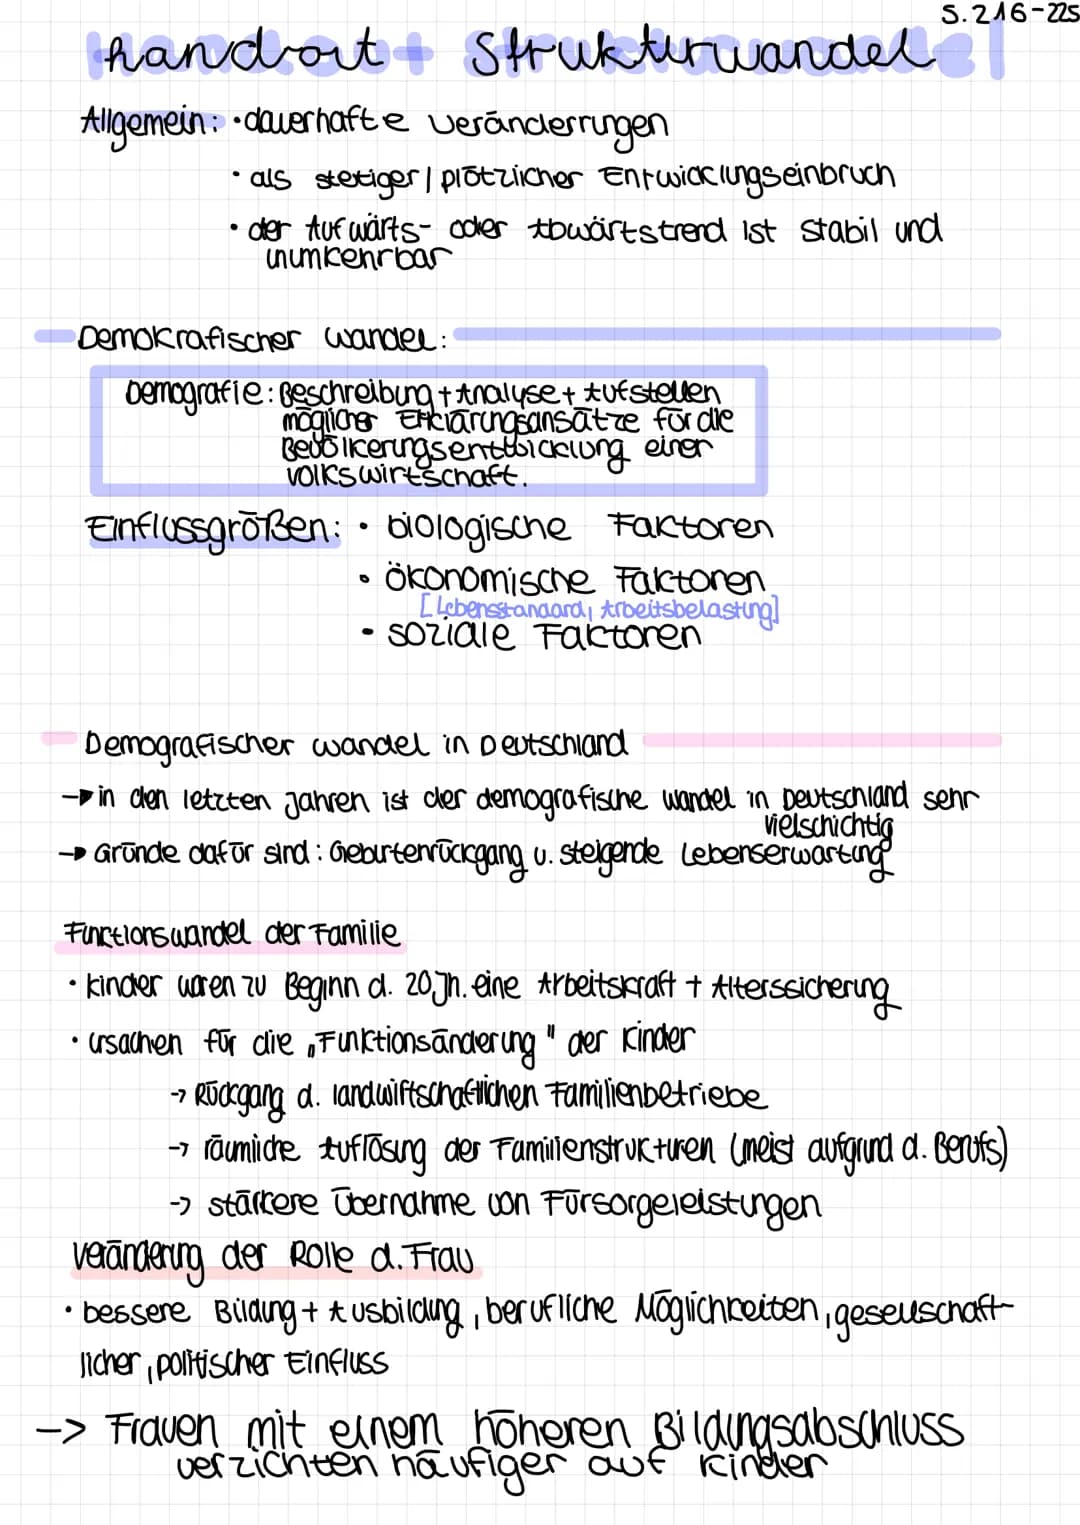 S.216-225
handout Strukturwandel
Allgemein: • dauerhafte Veränderrungen
• als stetiger / plötzlicher Entwicklungseinbruch
• der Aufwärts- oder Abwärtstrend ist stabil und
unumkehrbar
Demokrafischer wandel:
Demografie: Beschreibung + Analyse + Aufstellen
möglicher Erklärungsansätze für die
Bevölkerungsentwicklung einer
Volkswirtschaft.
Einflussgrößen: • biologische Faktoren
• ökonomische Faktoren
[Lebensstandard, Arbeitsbelastung]
• soziale Faktoren
Demografischer wandel in Deutschland
→ in den letzten Jahren ist der demografische wandel in Deutschland sehr
vielschichtig
→ Gründe dafür sind: Geburtenrückgang u. steigende Lebenserwartung
Funktionswandel der Familie
• kinder waren zu Beginn d. 20.Jh. eine Arbeitskraft + Alterssicherung
• ursachen für die „Funktionsänderung" der Kinder
→ Rückgang d. landwirtschaftlichen Familienbetriebe
→ räumliche Auflösung der Familienstrukturen (meist aufgrund d. Berufs)
→ stärkere Übernahme von Fürsorgeleistungen
veränderung der Rolle d. Frau
• bessere Bildung + Ausbildung, berufliche Möglichkeiten, gesellschaft-
licher, politischer Einfluss
-> Frauen mit einem höheren Bildungsabschluss
verzichten häufiger auf Kinder